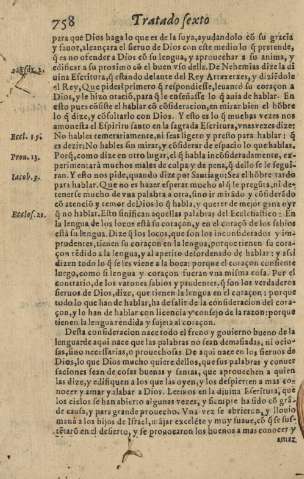 758 Tratado sexto
para que Dios haga lo que es de la suya, ayudandolo cõ su gracia
y fauor, alcançara el sieruo de Dios con este medio lo q̃ pretende,
q̃ es no ofender a Dios cõ su lengua, y aprouechar a su anima, y
edificar a su proximo cõ el buen vso delle. De Nehemias dize la di
uina Escritura, q̃ estando delante del Rey Artaxerxes, y diziẽdole
el Rey, Que pides! primero q̃ respondiesse, leuantò su coraçon a
Dios, y le hizo oraciõ, para q̃ le enseñasse lo q̃ auia de hablar. En
esto pues cõsiste el hablar cõ cõsideracion, en mirar bien el hõbre
lo q̃ dize, y cõsultarlo con Dios. Y esto es lo q̃ muchas vezes nos
amonesta el Espiritu santo en la sagrada Escritura, vnas vezes dize:
Eccl. 19. No hables temerariamente, ni seas ligero y presto para hablar: q̃
es dezir: No hables sin mirar, y cõsiderar de espacio lo que hablas.
Prou. 13. Porq̃, como dize en otro lugar, el q̃ habla incõsideradamente, ex-
perimentarà muchos males de culpa y de pena, q̃ dello se le segui-
Iacob. 3. ran. Y esto nos pide, quando dize por Santiago: Sea el hõbre tardo
para hablar. Que no es hazer esperar mucho al q̃ le pregũta, ni de-
tenerse mucho de vna palabra a otra, sino ir mirado y cõsiderãdo
cõ atenciõ y temor de Dios lo q̃ habla, y querer de mejor gana oyr
Eccles. 21. q̃ no hablar. Esto sinifican aquellas palabras del Ecclesiastico: En
la lengua de los locos està su coraçon, y en el coraçõ de los sabios
està su lengua. Dize q̃ los locos, que son los inconsiderados y im-
prudentes, tienen su coraçon en la lengua, porque tienen su cora-
çon rẽdido a la lengua, y al apetito desordenado de hablar: y assi
dizen todo lo q̃ se les viene a la boca: porque el coraçon consiente
luego, como si lengua y coraçon fueran vna misma cosa. Por el
contrario, de los varones sabios y prudentes, q̃ son los verdaderos
sieruos de Dios, dize, que tienen la lengua en el coraçon: porque
todo lo que han de hablar, ha de salir de la consideracion del cora-
çon, y lo han de hablar con licencia y consejo de la razon: porque
tienen la lengua rendida y sujeta al coraçon.
Desta consideracion nace todo el freno y gouierno bueno de la
lengua: de aqui nace que las palabras no sean demasiadas, ni ocio-
sas, sino necessarias, o prouechosas. De aqui nace en los sieruos de
Dios, lo que Dios mucho quiere dellos, que sus palabras y conuer
saciones sean de cosas buenas y santas, que aprouechen a quien
las dize, y edifiquen a los que las oyen, y los despierten a mas co-
nocer y amar y alabar a Dios. Leemos en la diuina Escritura, que
los cielos se han abierto algunas vezes, y siempre ha sido cõ grã-
de causa, y para grande prouecho. Vna vez se abrieron, y llouiò
manà a los hijos de Israel, mãjar excelẽte y muy suaue, cõ q̃ se sus-
tẽtarõ en el desierto, y se prouocaron los buenos a mas conocer y
amar